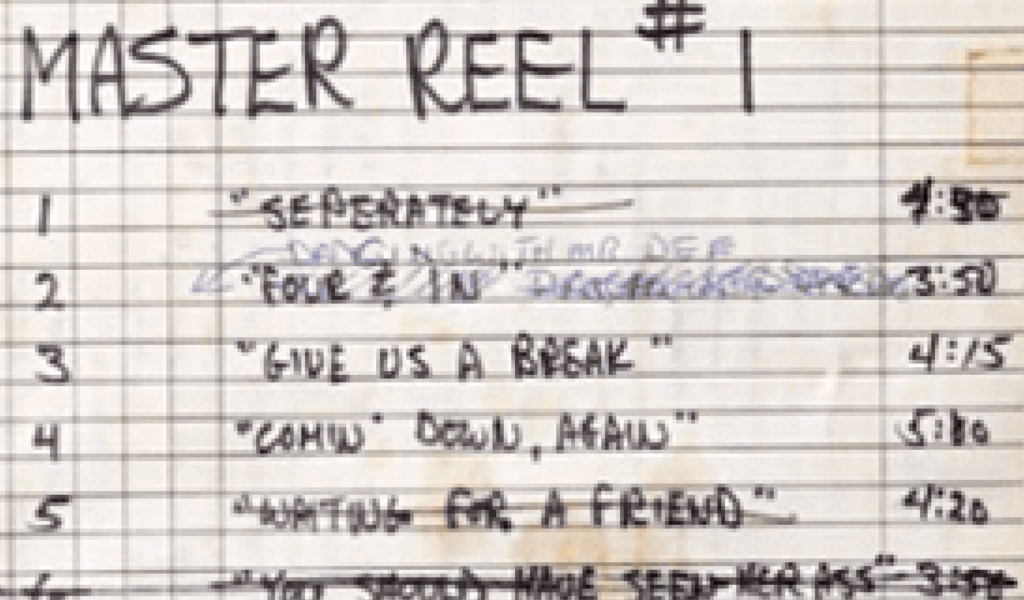 MASTER REEL #1
1 "SEPERATELY"
DANCING WITH MR DEE
2 "FOUR & IN" 3:50
3 "GIVE US A BREAK" 4:15
4 "COMIN' DOWN, AGAIN" 5:10
5 "WAITING FOR A FRIEND" 4:20
"YOU SHOULD HAVE SEEN HER ASS" 3:50